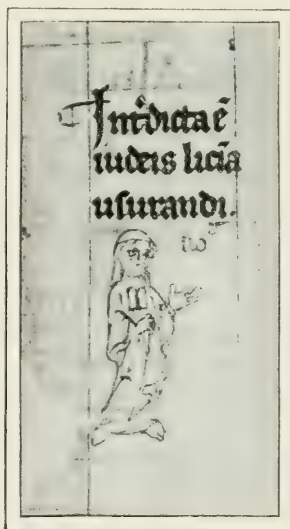 Int'dicta ē
iudeis licīa
uſurandi.